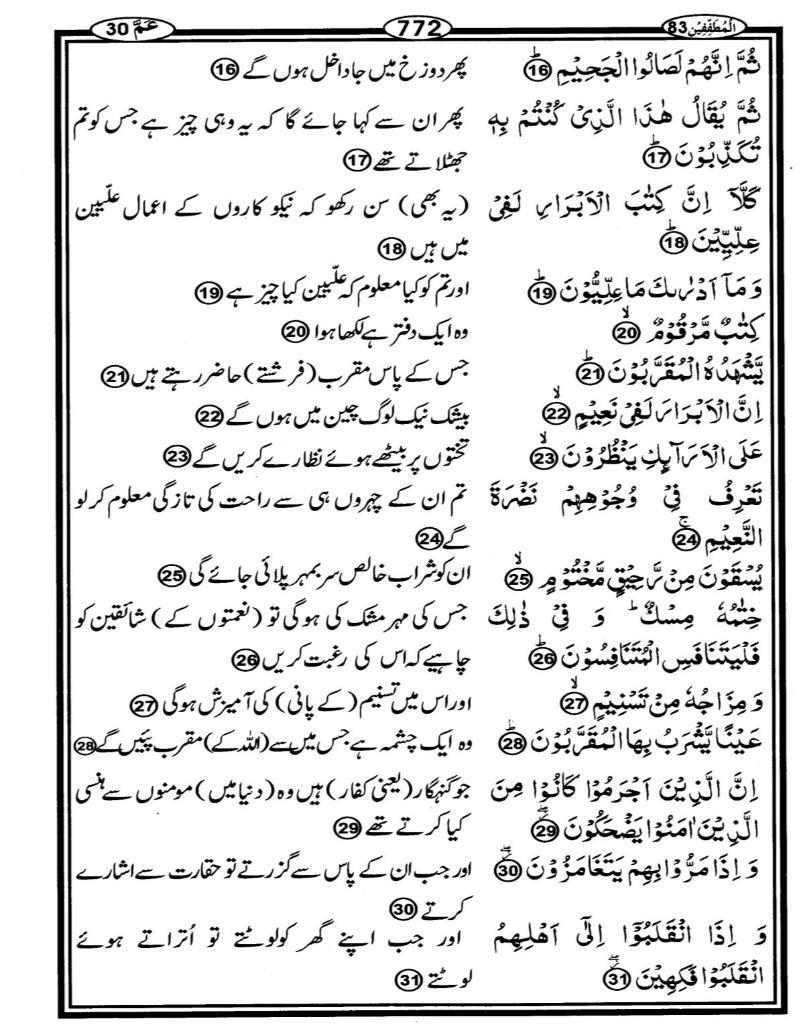 المُطَفِّفِيْن 83
772
عَمَّ 30
ثُمَّ اِنَّهُمْ لَصَالُوا الْجَحِيْمِ ؕ 16
پھر دوزخ میں جا داخل ہوں گے 16
ثُمَّ يُقَالُ هٰذَا الَّذِىْ كُنْتُمْ بِهٖ
تُكَذِّبُوْنَ ؕ 17
پھر ان سے کہا جائے گا کہ یہ وہی چیز ہے جس کو تم
جھٹلاتے تھے 17
كَلَّاۤ اِنَّ كِتٰبَ الْاَبْرَارِ لَفِىْ
عِلِّيِّيْنَ ؕ 18
(یہ بھی) سن رکھو کہ نیکو کاروں کے اعمال علّیین
میں ہیں 18
وَ مَاۤ اَدْرٰىكَ مَا عِلِّيُّوْنَ ؕ 19
اور تم کو کیا معلوم کہ علّیین کیا چیز ہے 19
كِتٰبٌ مَّرْقُوْمٌ ۙ 20
وہ ایک دفتر ہے لکھا ہوا 20
يَّشْهَدُهُ الْمُقَرَّبُوْنَ ؕ 21
جس کے پاس مقرب (فرشتے) حاضر رہتے ہیں 21
اِنَّ الْاَبْرَارَ لَفِىْ نَعِيْمٍ ۙ 22
بیشک نیک لوگ چین میں ہوں گے 22
عَلَى الْاَرَآئِكِ يَنْظُرُوْنَ ۙ 23
تختوں پر بیٹھے ہوئے نظارے کریں گے 23
تَعْرِفُ فِىْ وُجُوْهِهِمْ نَضْرَةَ
النَّعِيْمِ ۚ 24
تم ان کے چہروں ہی سے راحت کی تازگی معلوم کر لو
گے 24
يُسْقَوْنَ مِنْ رَّحِيْقٍ مَّخْتُوْمٍ ۙ 25
ان کو شراب خالص سر بمہر پلائی جائے گی 25
خِتٰمُهٗ مِسْكٌ ؕ وَ فِىْ ذٰلِكَ
فَلْيَتَنَافَسِ الْمُتَنَافِسُوْنَ ؕ 26
جس کی مہر مشک کی ہو گی تو (نعمتوں کے) شائقین کو
چاہیے کہ اس کی رغبت کریں 26
وَ مِزَاجُهٗ مِنْ تَسْنِيْمٍ ۙ 27
اور اس میں تسنیم (کے پانی) کی آمیزش ہو گی 27
عَيْنًا يَّشْرَبُ بِهَا الْمُقَرَّبُوْنَ ؕ 28
وہ ایک چشمہ ہے جس میں سے (اللہ کے) مقرب پئیں گے 28
اِنَّ الَّذِيْنَ اَجْرَمُوْا كَانُوْا مِنَ
الَّذِيْنَ اٰمَنُوْا يَضْحَكُوْنَ ۖ 29
جو گنہگار (یعنی کفار) ہیں وہ (دنیا میں) مومنوں سے ہنسی
کیا کرتے تھے 29
وَ اِذَا مَرُّوْا بِهِمْ يَتَغَامَزُوْنَ ۖ 30
اور جب ان کے پاس سے گزرتے تو حقارت سے اشارے
کرتے 30
وَ اِذَا انْقَلَبُوْۤا اِلٰٓى اَهْلِهِمُ
انْقَلَبُوْا فَكِهِيْنَ ۖ 31
اور جب اپنے گھر کو لوٹتے تو اُتراتے ہوئے
لوٹتے 31